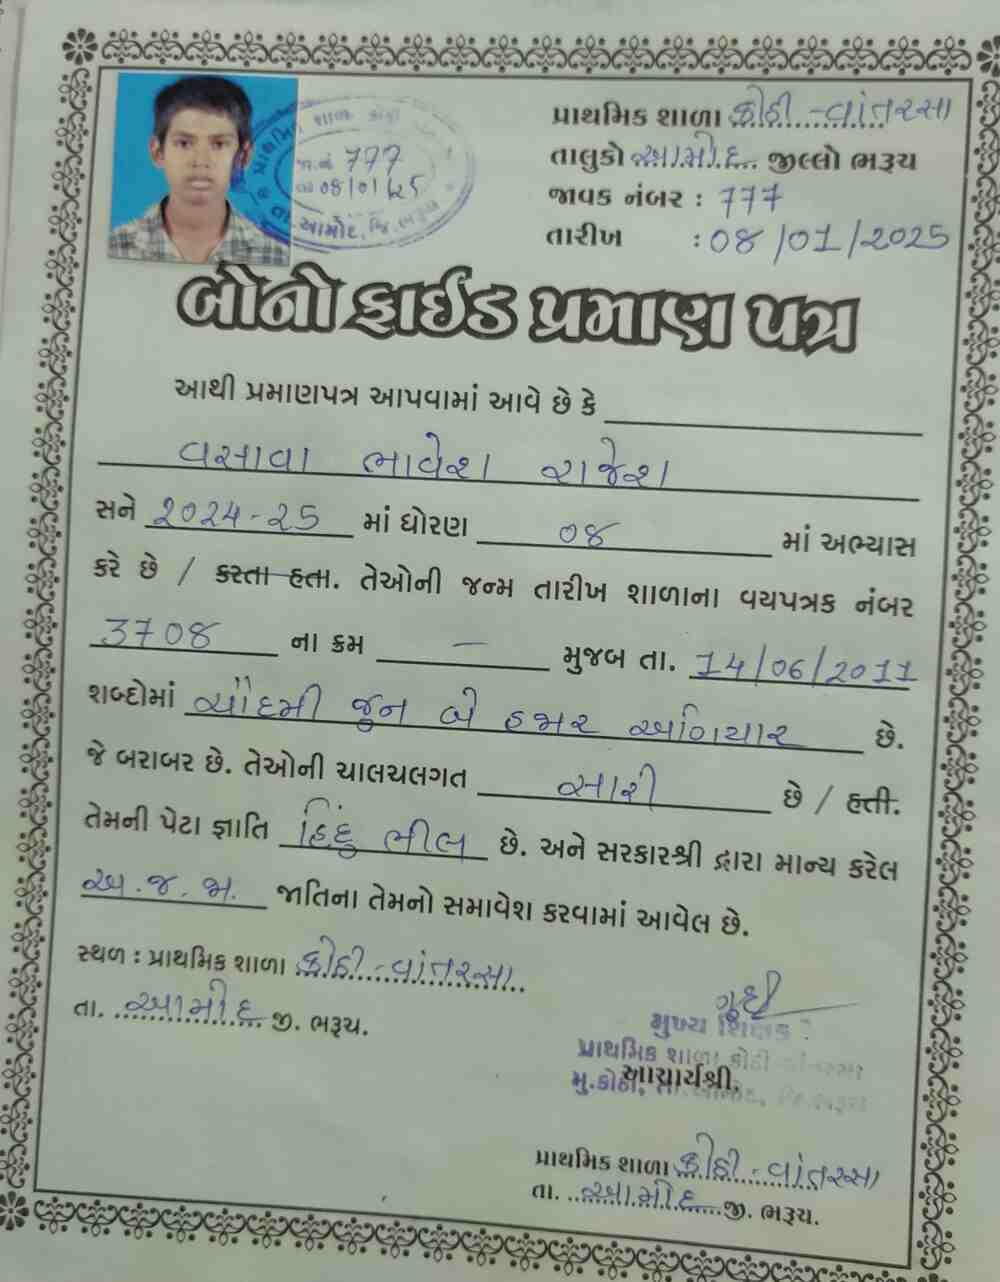 પ્રાથમિક શાળા કોઠી-વાંતરસા
તાલુકો આમોદ જીલ્લો ભરૂચ
જાવક નંબર : 777
તારીખ : 08/01/2025
જા.નં 777
તા 08/01/25
આમોદ, જિ. ભરૂચ
બોનોફાઈડ પ્રમાણ પત્ર
આથી પ્રમાણપત્ર આપવામાં આવે છે કે
વસાવા ભાવેશ રાજેશ
સને 2024-25 માં ધોરણ 08 માં અભ્યાસ
કરે છે / કરતા હતા. તેઓની જન્મ તારીખ શાળાના વયપત્રક નંબર
3708 ના ક્રમ - મુજબ તા. 14/06/2011
શબ્દોમાં ચૌદમી જુન બે હજાર અગિયાર છે.
જે બરાબર છે. તેઓની ચાલચલગત સારી છે / હતી.
તેમની પેટા જ્ઞાતિ હિંદુ ભીલ છે. અને સરકારશ્રી દ્વારા માન્ય કરેલ
અ.જ.જા. જાતિના તેમનો સમાવેશ કરવામાં આવેલ છે.
સ્થળ : પ્રાથમિક શાળા કોઠી-વાંતરસા
તા. આમોદ જી. ભરૂચ.
મુખ્ય શિક્ષક
પ્રાથમિક શાળા કોઠી
આચાર્યશ્રી.
મુ.કોઠી, તા.આમોદ, જિ.ભરૂચ
પ્રાથમિક શાળા કોઠી-વાંતરસા
તા. આમોદ જી. ભરૂચ.